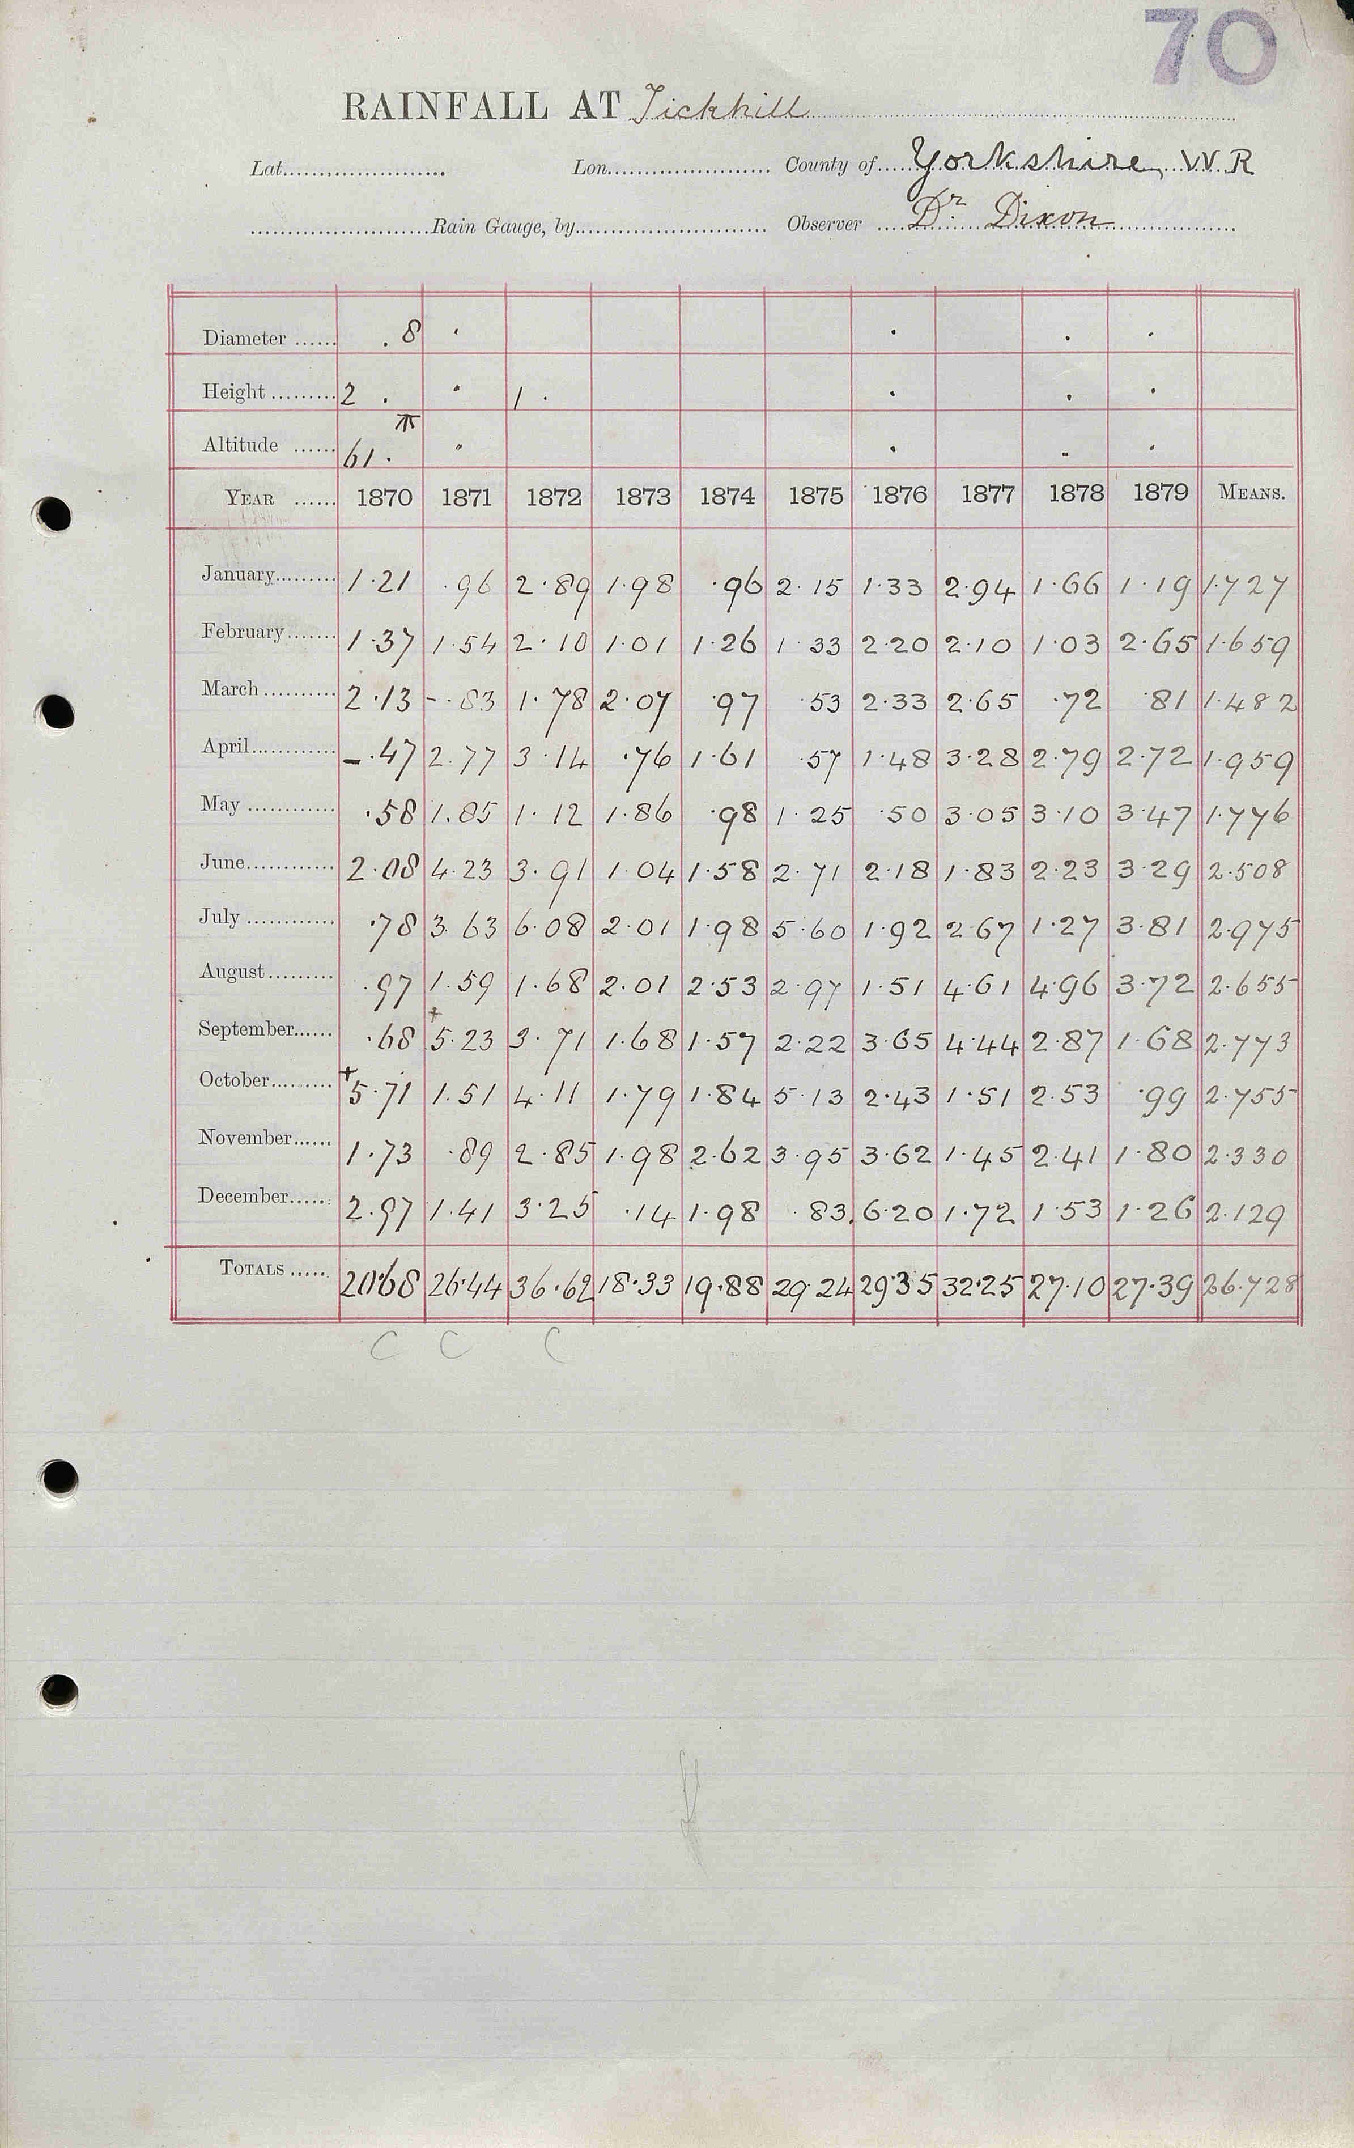 70
RAINFALL AT Tickhill
Lat. Lon. County of Yorkshire, W R
Rain Gauge, by Observer Dr. Dixon
Diameter .8
Height 2 . 1 .
Altitude 61.
YEAR 1870 1871 1872 1873 1874 1875 1876 1877 1878 1879 MEANS.
January 1.21 .96 2.89 1.98 .96 2.15 1.33 2.94 1.66 1.19 1.727
February 1.37 1.54 2.10 1.01 1.26 1.33 2.20 2.10 1.03 2.65 1.659
March 2.13 - .83 1.78 2.07 .97 .53 2.33 2.65 .72 .81 1.482
April - .47 2.77 3.14 .76 1.61 .57 1.48 3.28 2.79 2.72 1.959
May .58 1.85 1.12 1.86 .98 1.25 .50 3.05 3.10 3.47 1.776
June 2.08 4.23 3.91 1.04 1.58 2.71 2.18 1.83 2.23 3.29 2.508
July .78 3.63 6.08 2.01 1.98 5.60 1.92 2.67 1.27 3.81 2.975
August .97 1.59 1.68 2.01 2.53 2.97 1.51 4.61 4.96 3.72 2.655
September .68 +5.23 3.71 1.68 1.57 2.22 3.65 4.44 2.87 1.68 2.773
October +5.71 1.51 4.11 1.79 1.84 5.13 2.43 1.51 2.53 .99 2.755
November 1.73 .89 2.85 1.98 2.62 3.95 3.62 1.45 2.41 1.80 2.330
December 2.97 1.41 3.25 .14 1.98 .83 6.20 1.72 1.53 1.26 2.129
TOTALS 20.68 26.44 36.62 18.33 19.88 29.24 29.35 32.25 27.10 27.39 26.728
C C C